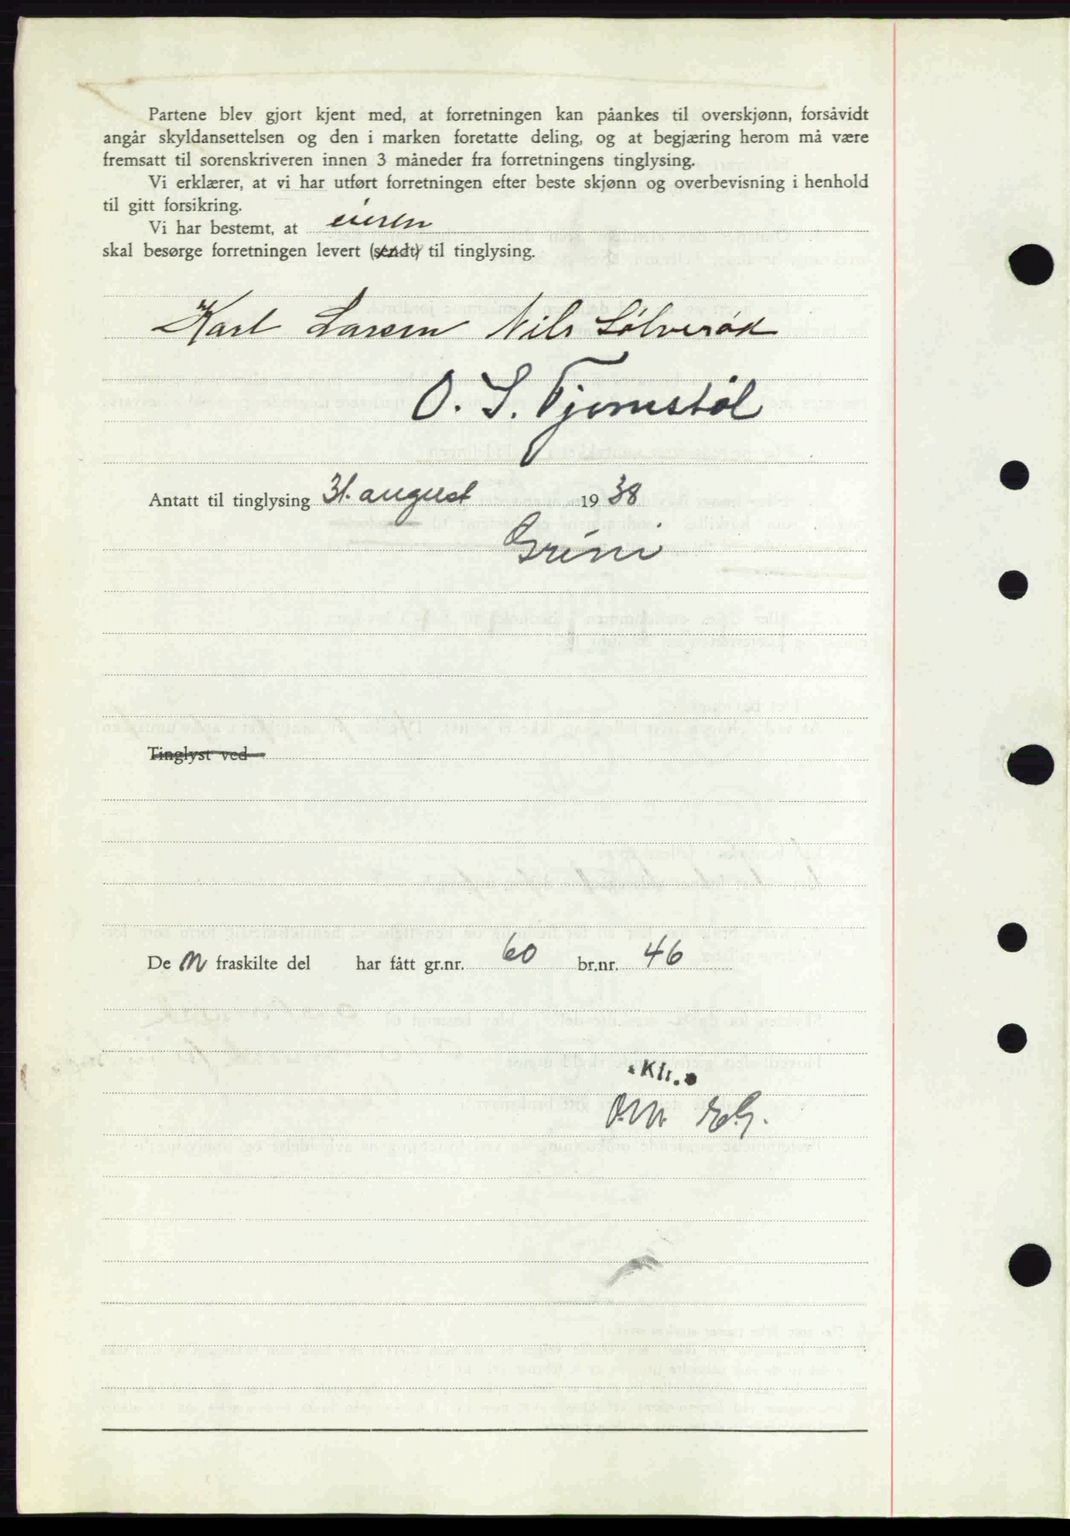 Partene blev gjort kjent med, at forretningen kan påankes til overskjønn, forsåvidt
angår skyldansettelsen og den i marken foretatte deling, og at begjæring herom må være
fremsatt til sorenskriveren innen 3 måneder fra forretningens tinglysing.
Vi erklærer, at vi har utført forretningen efter beste skjønn og overbevisning i henhold
til gitt forsikring.
Vi har bestemt, at eieren
skal besørge forretningen levert (sendt) til tinglysing.
Karl Larsen Nils Sølverød
O. S. Fjomstøl
Antatt til tinglysing 31. august 1938
Grini
Tinglyst ved
De n fraskilte del har fått gr.nr. 60 br.nr. 46
Kfr.